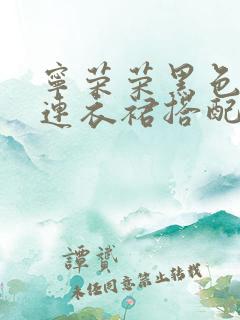 寧荣荣黑色
連衣裙搭配
譚贇
未经同意禁止转载